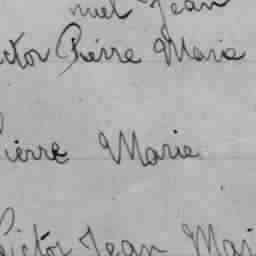 nuel Jean
ctor Pierre Marie
Pierre Marie
Victor Jean Mari